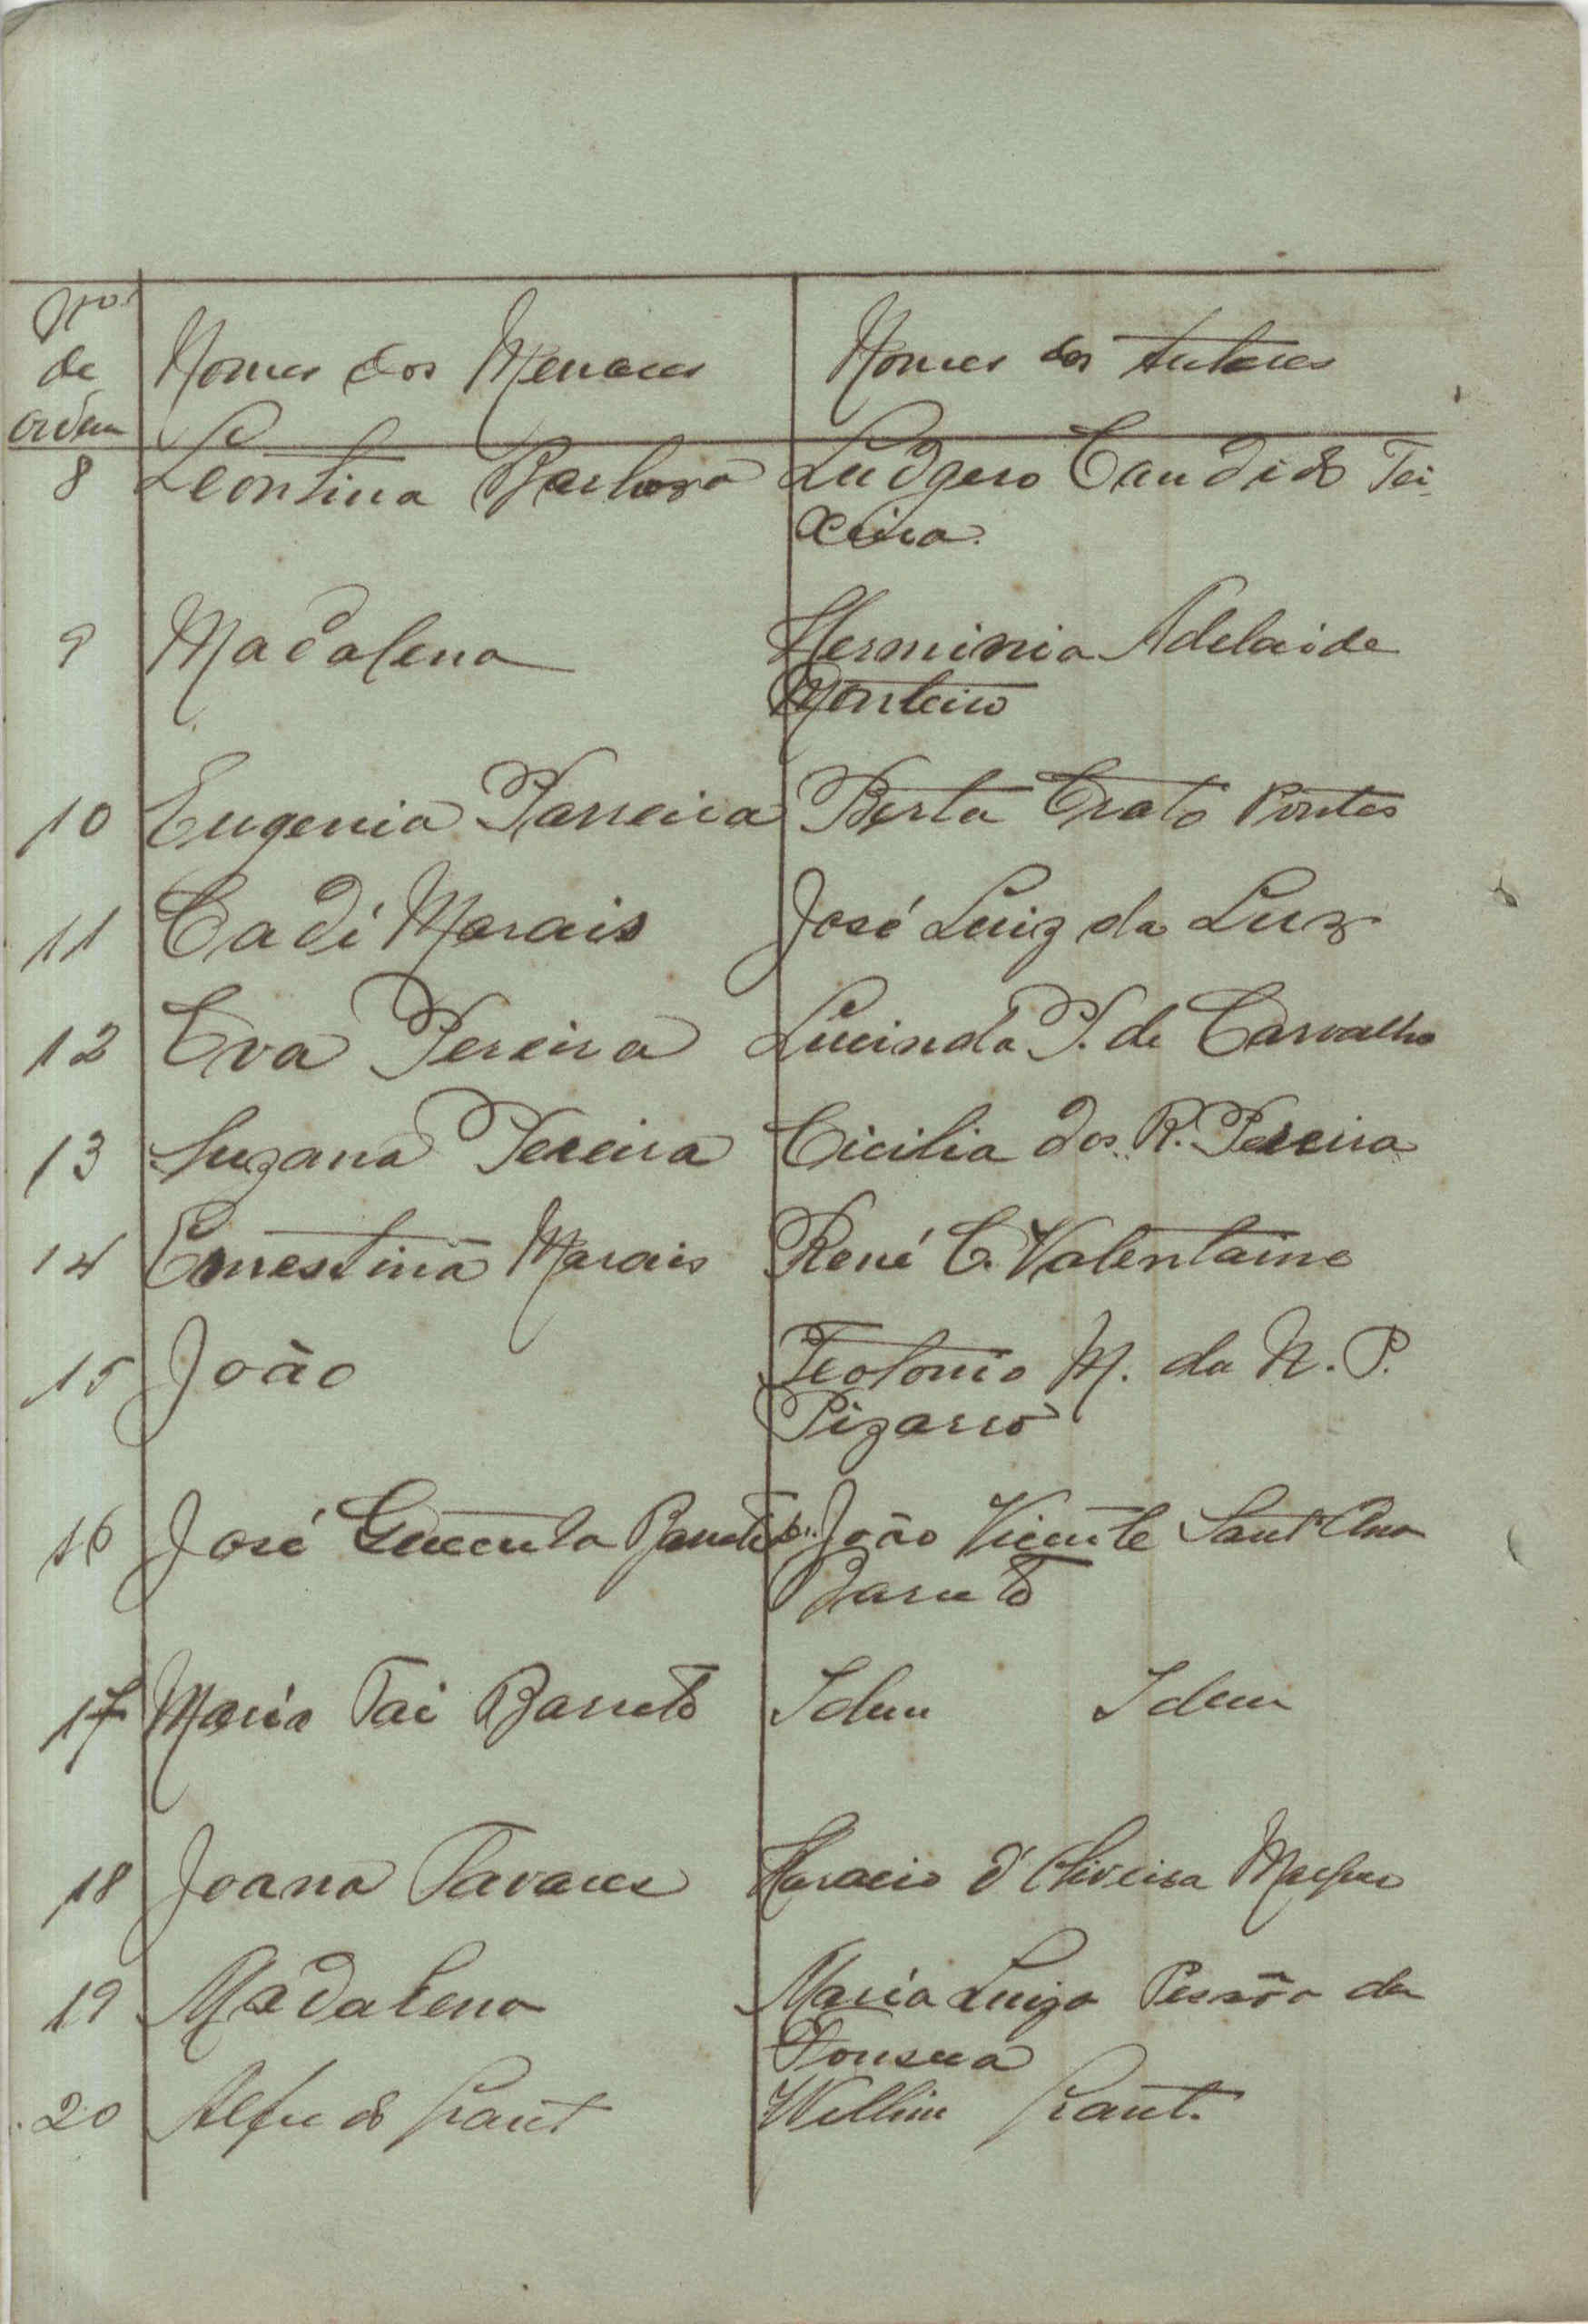 Nos
de
ordem
Nomes dos Menores
Nomes dos Tutores
8 Leontina Barbosa Ludgero Candido Tei-
xeira.
9 Madalena Herminia Adelaide
Monteiro
10 Eugenia Parreira Berta Crato Pontes
11 Cadi Morais José Luiz da Luz
12 Eva Pereira Lucinda P. de Carvalho
13 Suzana Pereira Cicilia dos R. Pereira
14 Ernestina Morais René C. Valentaine
15 João Teotonio M. da N. P.
Pizarro
16 José Barreto João Vicente Sant'Ana
Barreto
17 Maria Tai Barreto Idem Idem
18 Joana Tavares Horacio d'Oliveira
19 Madalena Maria Luiza Pessôa da
Fonseca
20 Alfredo Grant Grant.